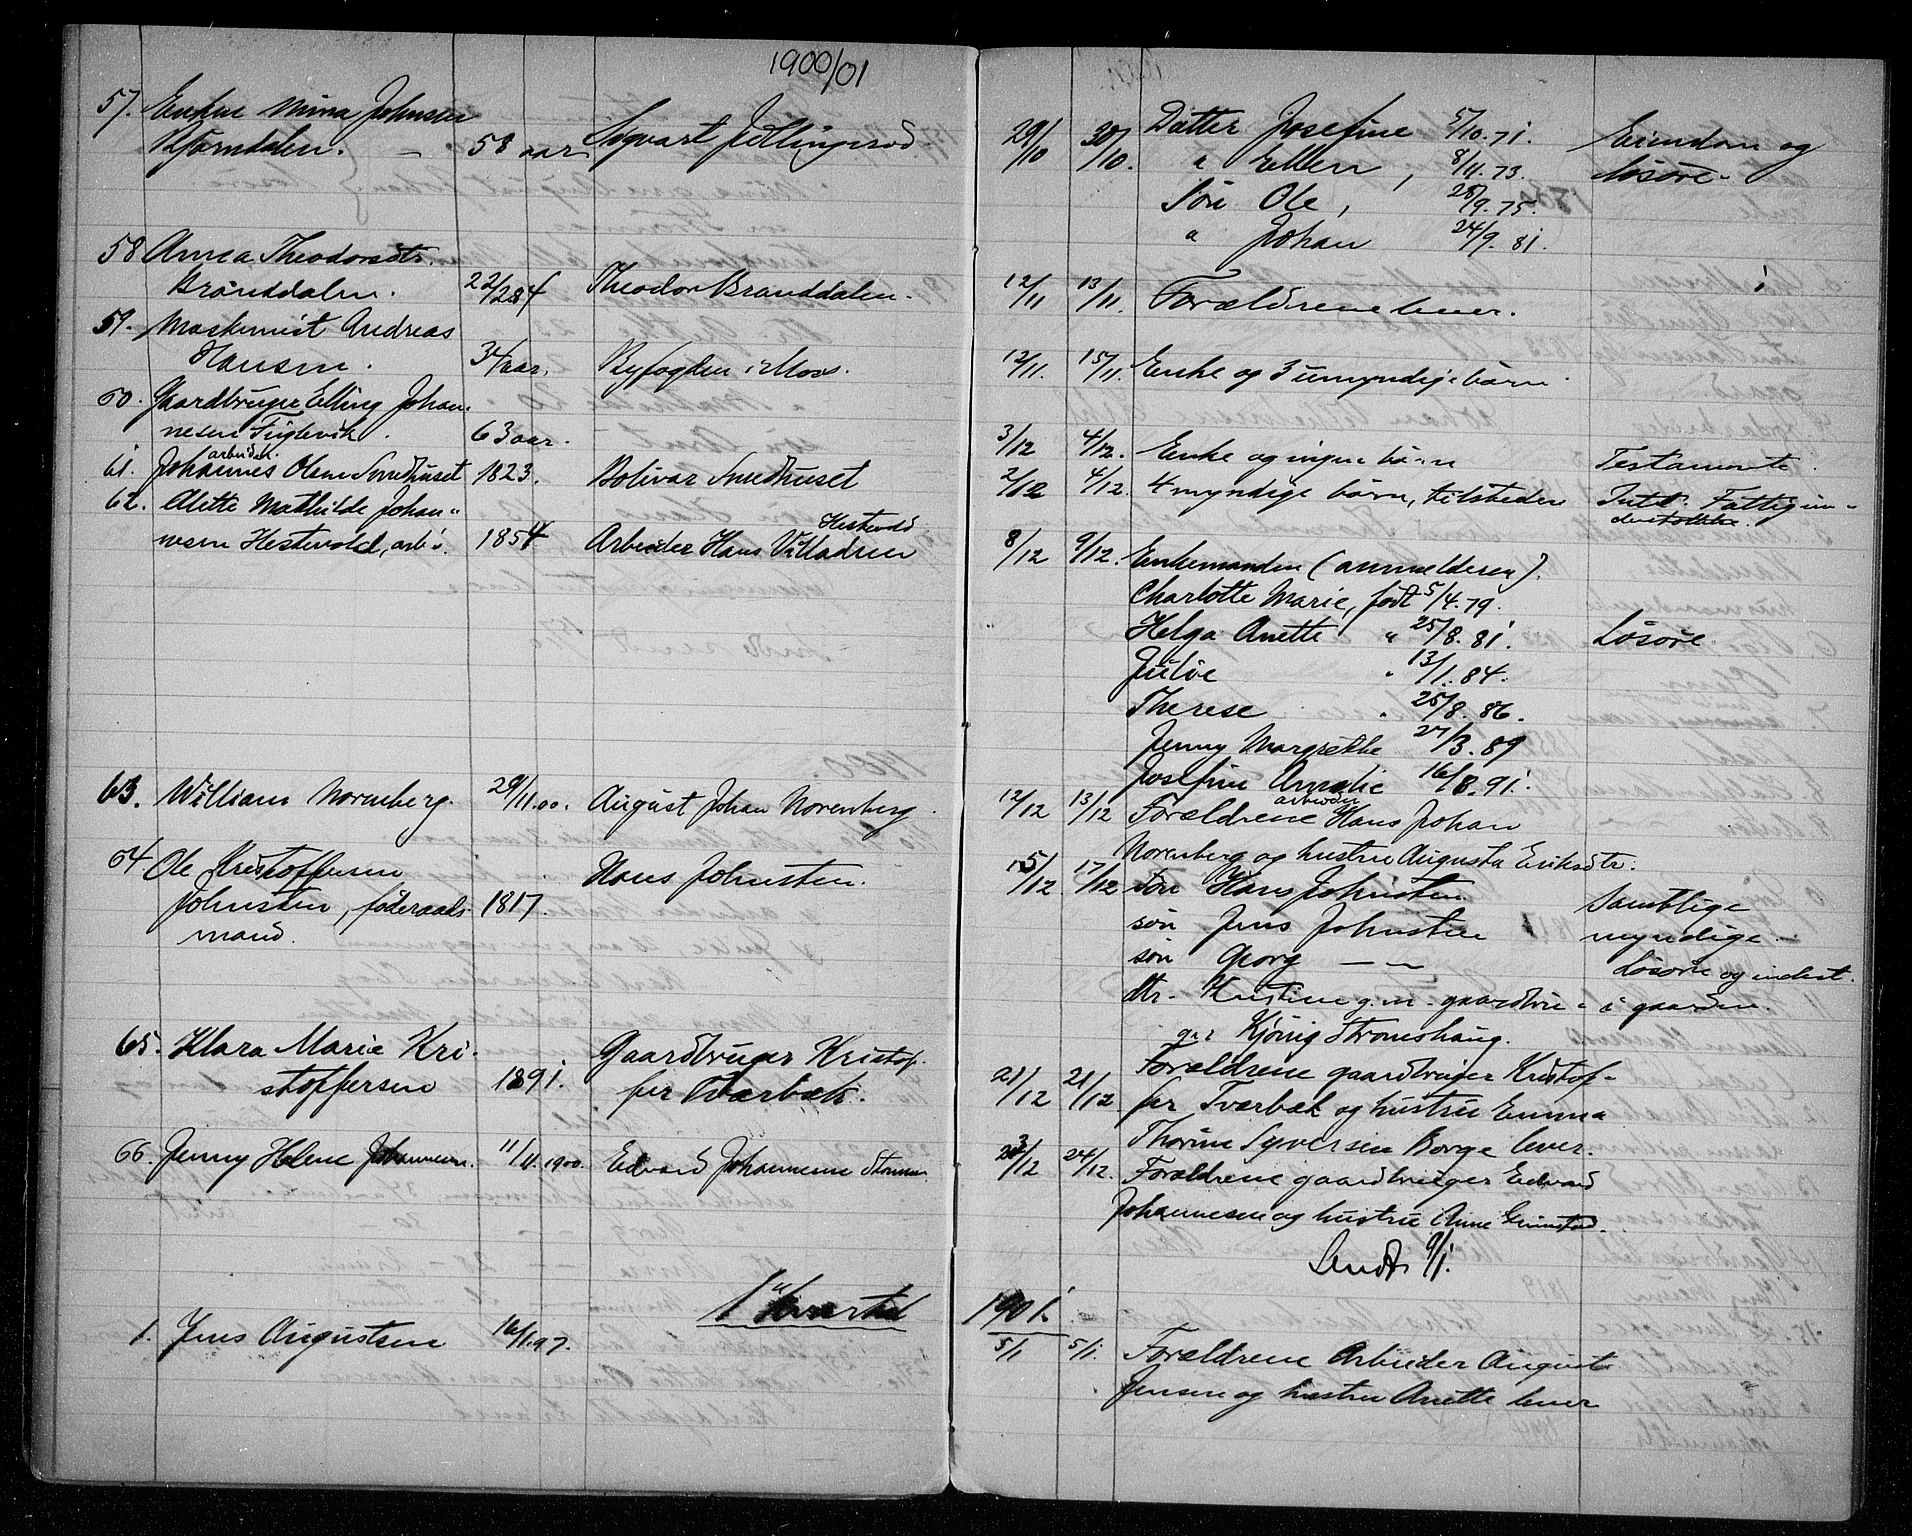 1900/01
57. Enken Mina Johnsen
Bjørndalen. — 58 aar Sigvart Jellingsrød
58 Anna Theodorsdtr.
Brånddalen. 22/2 84 Theodor Brånddalen.
59. Maskinist Andreas
Hansen. 34 aar. Byfogden i Moss.
60. Gaardbruger Elling Johan-
nesen Fuglevik. 63 aar. —
arbeider
61. Johannes Olsen Smedhuset 1823. Bolivar Smedhuset
62. Alette Mathilde Johan-
nesen Hestevold, arb. 1854 Arbeider Hans Villadsen Hestevold
63. William Norenberg. 29/11.00. August Johan Norenberg
64 Ole Kristoffersen Hans Johnsten.
Johnsten, føderaads- 1817.
mand.
65. Klara Marie Kri-
stoffersen 1891. Gaardbruger Kristof-
fer Tværbæk.
66. Jenny Helene Johannesen. 11/11.1900. Edvard Johannesen
1ste kvartal
1. Jens Augustsen 16/1.97.
29/10 30/10. Datter Josefine 5/10.71. Eiendom og
" Ellen, 8/11.73. løsøre.
Søn Ole, 28/9.75.
" Johan 24/9.81.
12/11 13/11. Forældrene lever.
12/11. 15/11. Enke og 3 umyndige børn.
3/12 4/12. Enke og ingen børn Testamente.
2/12 4/12. 4 myndige børn, tilstede Intet. Fattigun-
derstøttelse.
8/12 9/12. Enkemanden (anmelderen).
Charlotte Marie, født 5/4.79.
Helga Anette " 25/8.81. Løsøre.
Julie " 13/1.84.
Therese " 25/8.86.
Jenny Margrethe 27/3.89
Josefine Amalie 16/8.91.
12/12 13/12 Forældrene arbeider Hans Johan
Norenberg og hustru Augusta Eriksdtr.
15/12 17/12 søn Hans Johnsten Samtlige
søn Jens Johnsten myndige.
søn Georg — — Løsøre og indest.
dtr. Kristine g.m. gaardbru- i gaarden.
ger Kjönig Stromshaug.
21/12 21/12 Forældrene gaardbruger Kristof-
fer Tværbæk og hustru Emma
Thorine Syversen Borge lever.
23/12 24/12. Forældrene gaardbruger Edvard
Johannesen og hustru Anne
Sendt 9/1.
1901.
5/1 5/1. Forældrene Arbeider August
Jensen og hustru Anette lever